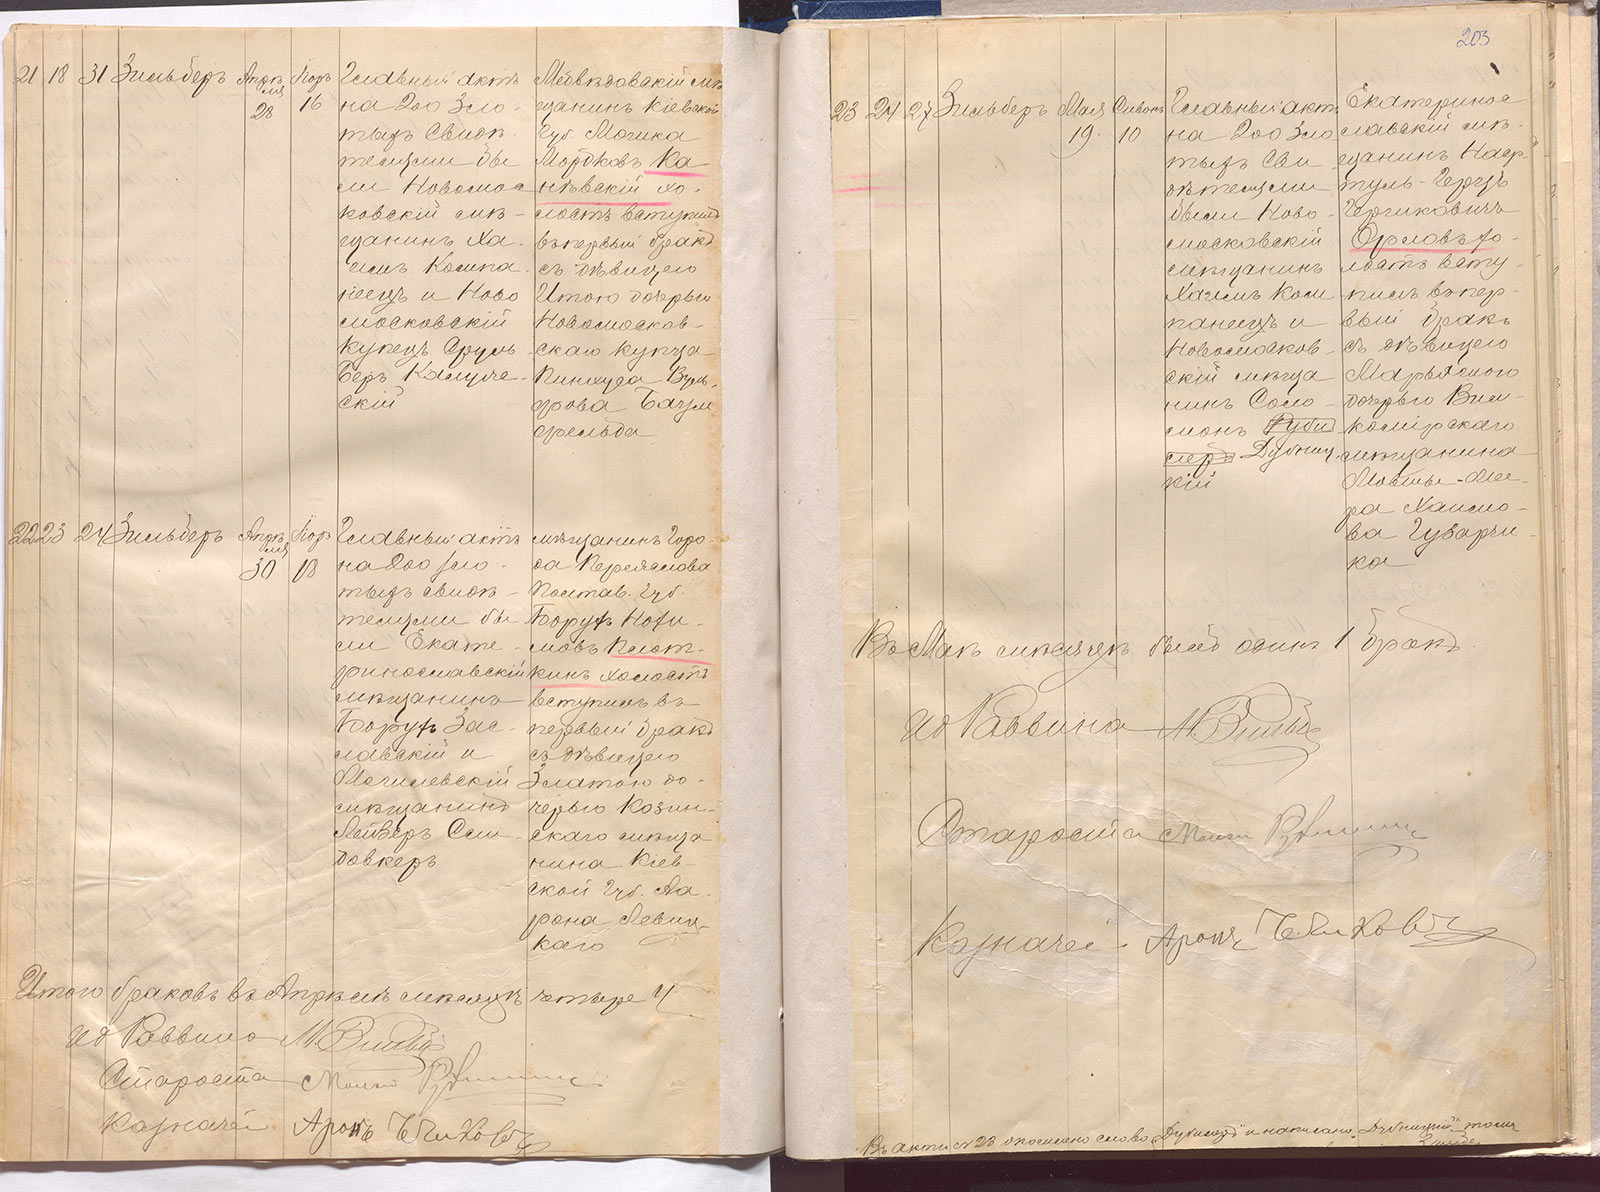 21 18 31 Зильберъ Апрѣля 28 Iіоръ 16
Главный актъ
на 200 зло-
тыхъ Свидѣ
телями бы
ли Новомос
ковскій мѣ-
щанинъ Ха-
имъ Компа-
неецъ и Ново
московскій
купецъ Сруль
Беръ
скій
Медвѣдовскій мѣ
щанинъ Кіевской
Губ. Мошка
Мордковъ Ка-
нѣвскій хо-
лостъ вступилъ
въ первый бракъ
съ дѣвицею
Итою дочерью
Новомосков-
скаго купца
Пинхуса Вуль-
фова Бахм
фельда
22 23 24 Зильберъ Апрѣля 30 Iіоръ 18
Главный актъ
на 200 зло-
тыхъ свидѣ-
телями бы
ли Екате-
ринославскій
мѣщанинъ
Борухъ Зас-
лавскій и
Могилевскій
мѣщанинъ
Лейзеръ Сам
довкеръ
мѣщанинъ горо-
да Переяслова
Полтав. Губ.
Борухъ Нохи-
мовъ Плот-
кинъ холостъ
вступилъ въ
первый бракъ
съ дѣвицею
Златою до-
черью Козин-
скаго мѣща
нина Кіев-
ской Губ. Аа-
рона Левиц-
каго
Итого браковъ въ Апрѣлѣ мѣсяцѣ четыре 4
Ид Раввина М. Зильбе
Староста
Казначей Аронъ
203
23 24 27 Зильберъ Мая 19. Сивонъ 10
Главный актъ
на 200 зло
тыхъ Сви
дѣтелями
были Ново-
московскій
мѣщанинъ
Хаимъ Ком
панеецъ и
Новомосков-
скій мѣща
нинъ Соло-
монъ
Дубниц-
кій
Екатеринос
лавскій мѣ-
щанинъ Наф-
туль-Герцъ
Герциковичъ
Орловъ хо-
лостъ всту-
пилъ въ пер-
вый бракъ
съ дѣвицею
Марьясною
дочерью Вил-
комірскаго
мѣщанина
Мовши-Ме-
ра Хаимо-
ва Гуварчи-
ка
Въ Маѣ мѣсяцѣ былъ одинъ 1 бракъ
Ид Раввина М. Зильбе
Староста
Казначей Аронъ
Въ актѣ № 23 окошено слово и написано „Дубницкій"